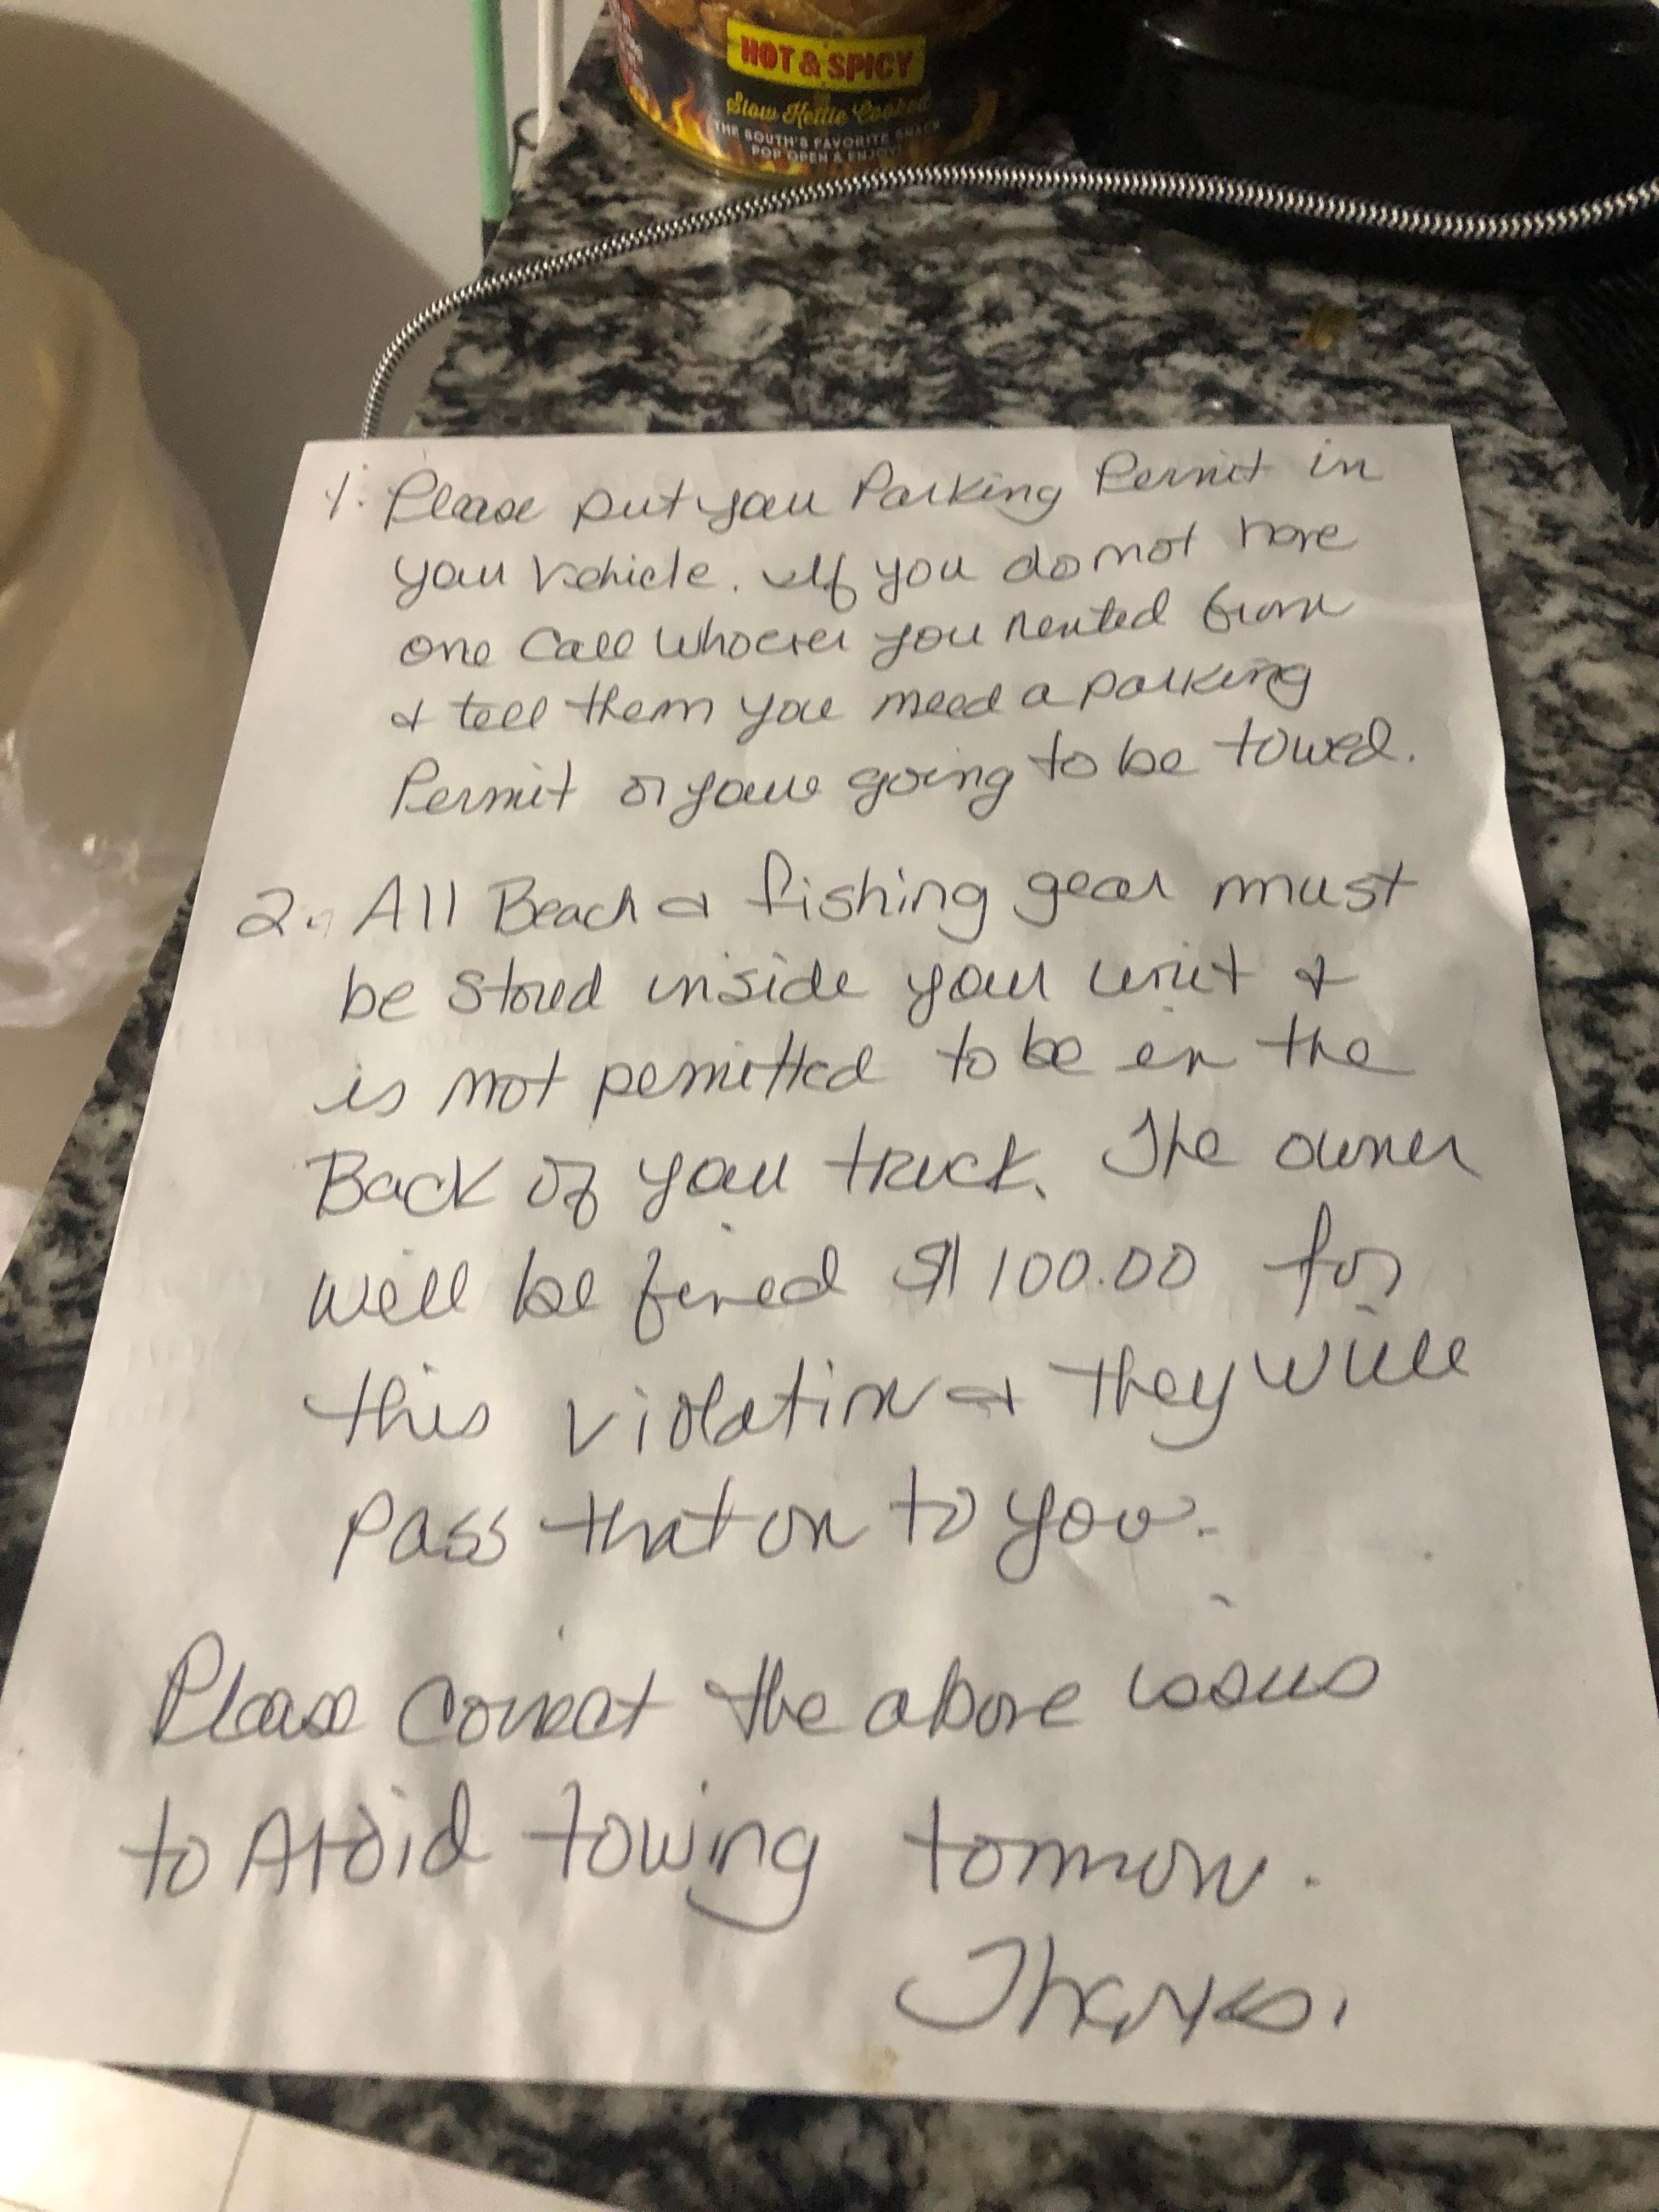 HOT & SPICY
Slow Kettle Cooked
THE SOUTH'S FAVORITE SNACK
POP OPEN & ENJOY!
1. Please put your Parking Permit in
your vehicle. If you do not have
one Call whoever you rented from
& tell them you need a parking
Permit or your going to be towed.
2. All Beach & fishing gear must
be stored inside your unit &
is not permitted to be in the
Back of your truck. The owner
will be fined $100.00 for
this violation & they will
pass that on to you.
Please correct the above issues
to Avoid towing tomorrow.
Thanks.